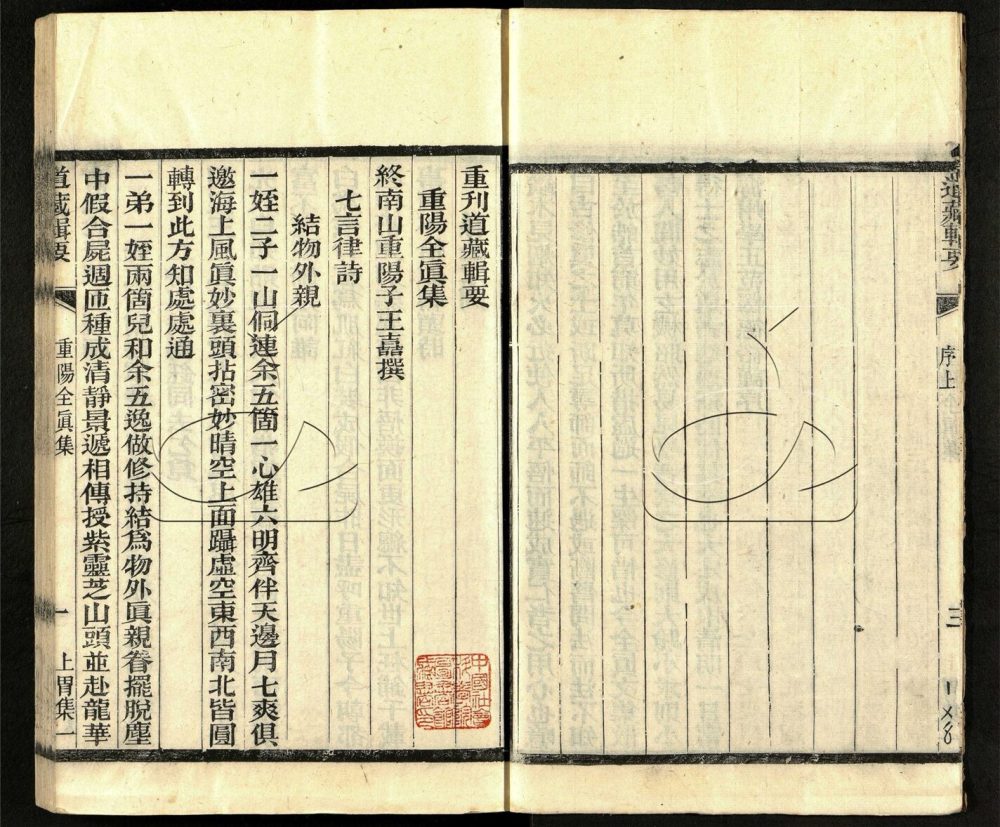 道藏輯要
序上
三
重刊道藏輯要
重陽全眞集
終南山重陽子王嚞撰
七言律詩
結物外親
一姪二子一山侗連余五箇一心雄六明齊伴天邊月七爽俱
邀海上風眞妙裏頭拈密妙晴空上面躡虛空東西南北皆圓
轉到此方知處處通
一弟一姪兩箇兒和余五逸做修持結爲物外眞親眷擺脫塵
中假合屍週匝種成清靜景遞相傳授紫靈芝山頭並赴龍華
道藏輯要
重陽全眞集
一
上胃集一